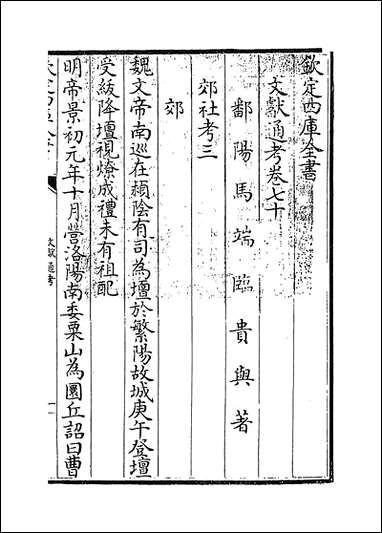 欽定四庫全書
文獻通考卷七十
鄱陽馬端臨貴與著
郊社考三
郊
魏文帝南巡在潁陰有司為壇於繁陽故城庚午登壇
受紱降壇視燎成禮未有祖配
明帝景初元年十月營洛陽南委粟山為圜丘詔曰曹
文獻通考